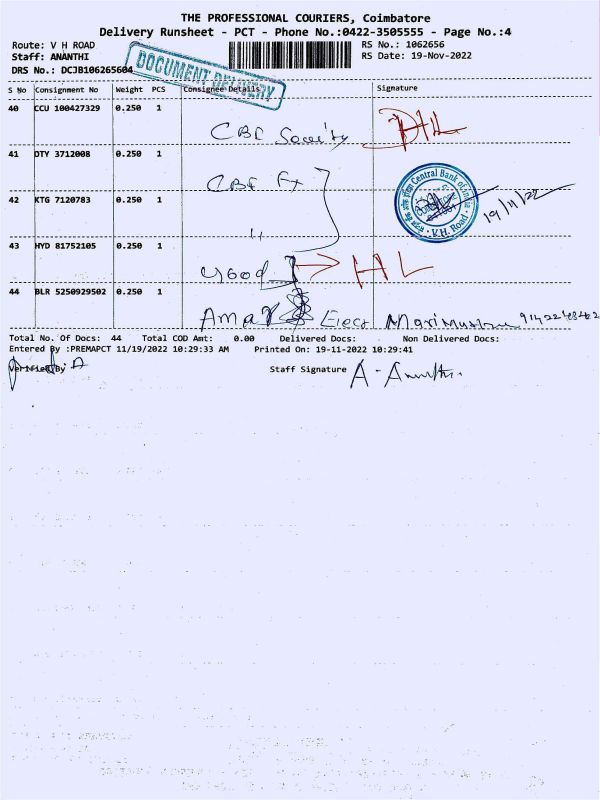 THE PROFESSIONAL COURIERS, Coimbatore
Delivery Runsheet - PCT - Phone No.:0422-3505555 - Page No.:4
Route: V H ROAD
RS No.: 1062656
Staff: ANANTHI
RS Date: 19-Nov-2022
DRS No.: DCJB106265604
DOCUMENT DELIVERY
S No Consignment No Weight PCS Consignee Details Signature
40 CCU 100427329 0.250 1
41 DTY 3712008 0.250 1
Central Bank of India
42 KTG 7120783 0.250 1
V.H. Road
19/11/22
43 HYD 81752105 0.250 1
HL
44 BLR 5250929502 0.250 1
Amar Elect
Total No. Of Docs: 44 Total COD Amt: 0.00 Delivered Docs: Non Delivered Docs:
Entered By :PREMAPCT 11/19/2022 10:29:33 AM Printed On: 19-11-2022 10:29:41
Verified By
Staff Signature A - Ananthi.